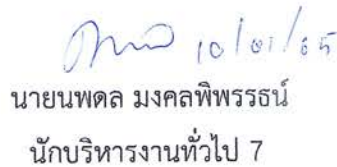 10/01/65
นายนพดล มงคลพิพรรธน์
นักบริหารงานทั่วไป 7